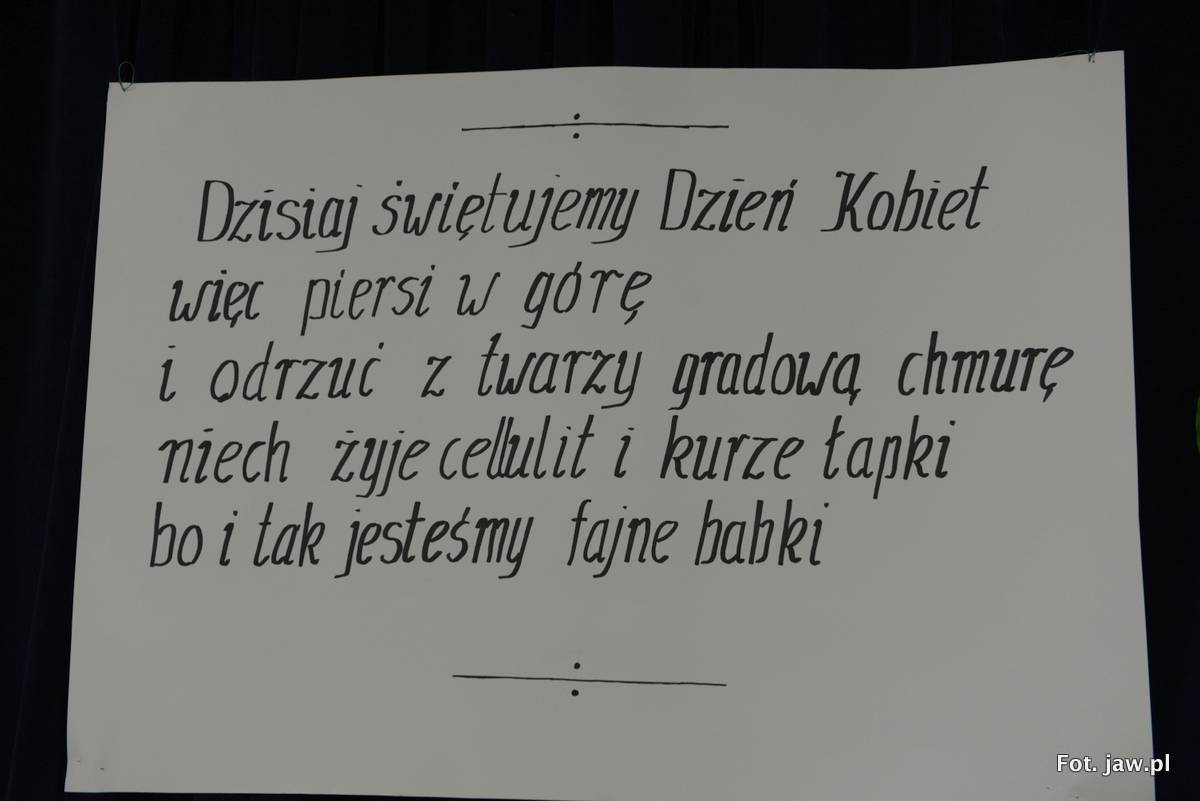 Dzisiaj świętujemy Dzień Kobiet
więc piersi w górę
i odrzuć z twarzy gradową chmurę
niech żyje cellulit i kurze łapki
bo i tak jesteśmy fajne babki
Fot. jaw.pl